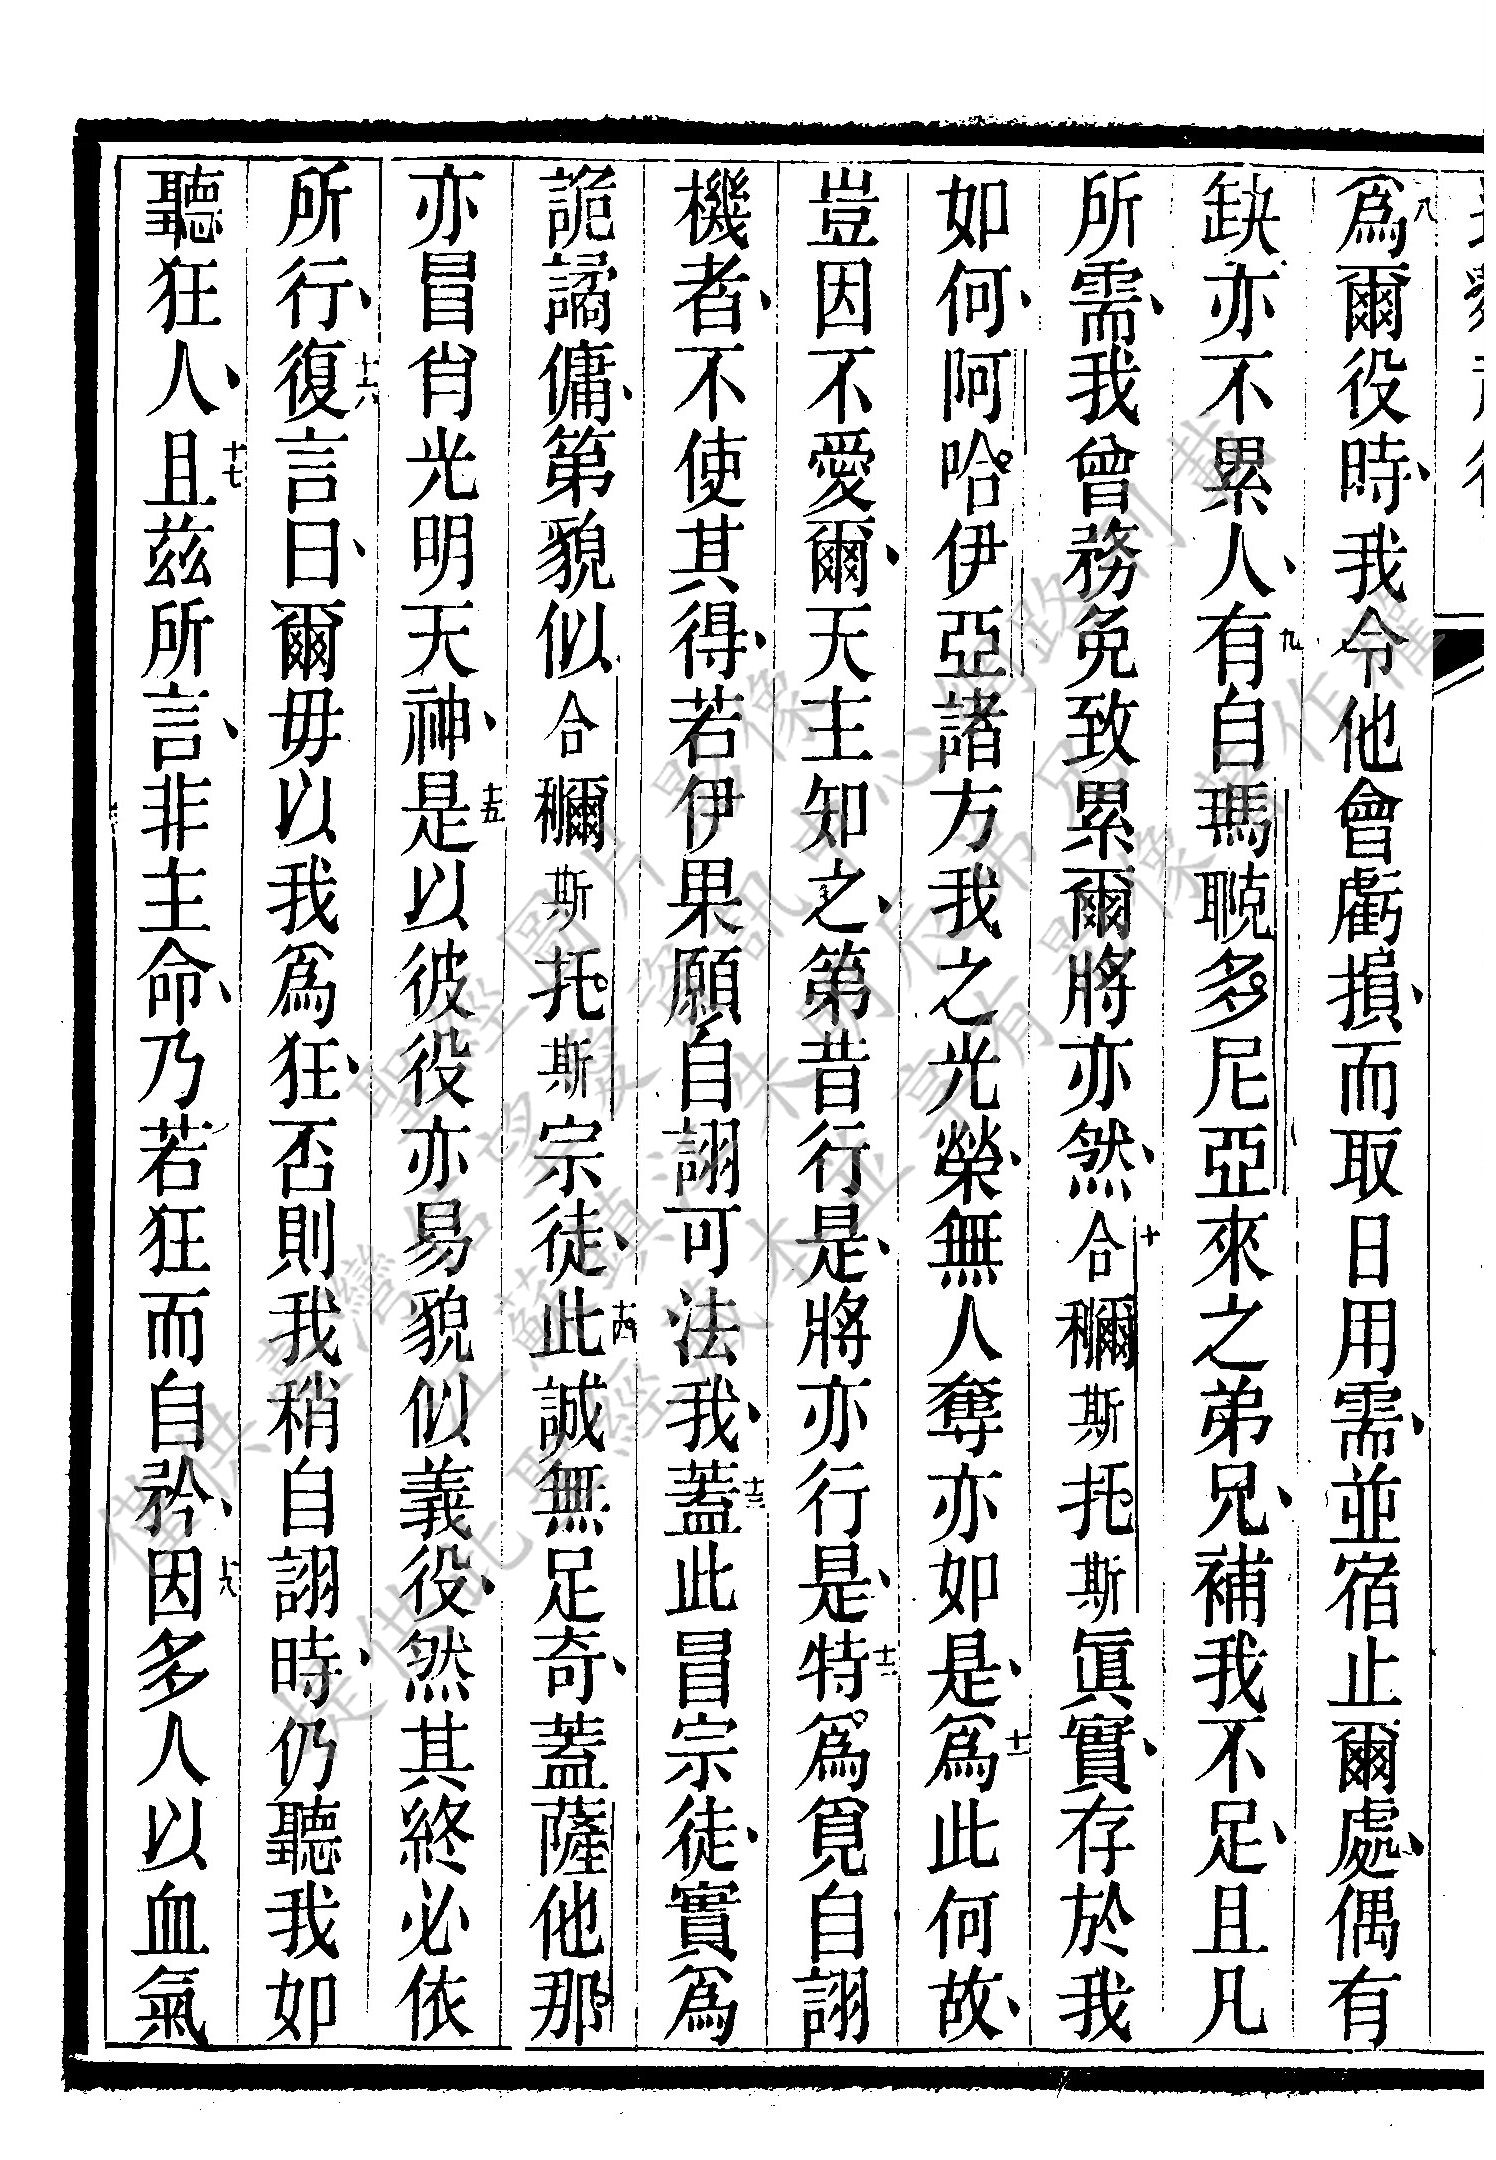 八爲爾役時、我令他會虧損、而取日用需、並宿止爾處、偶有
缺亦不累人、九有自瑪多尼亞來之弟兄、補我不足、且凡
所需、我曾務免致累爾將亦然、十合穪斯托斯眞實、存於我
如何、阿哈伊亞諸方我之光榮、無人奪亦如是、十一爲此何故、
豈因不愛爾、天主知之、第昔行是、將亦行是、十二特爲覓自詡
機者、不使其得、若伊果願自詡可法我、十三蓋此冒宗徒、實爲
詭譎傭、第貌似合穪斯托斯宗徒、十四此誠無足奇、蓋薩他那
亦冒肖光明天神、十五是以彼役亦易貌似義役、然其終必依
所行、十六復言曰、爾毋以我爲狂、否則我稍自詡時、仍聽我如
聽狂人、十七且茲所言、非主命、乃若狂而自矜、十八因多人以血氣